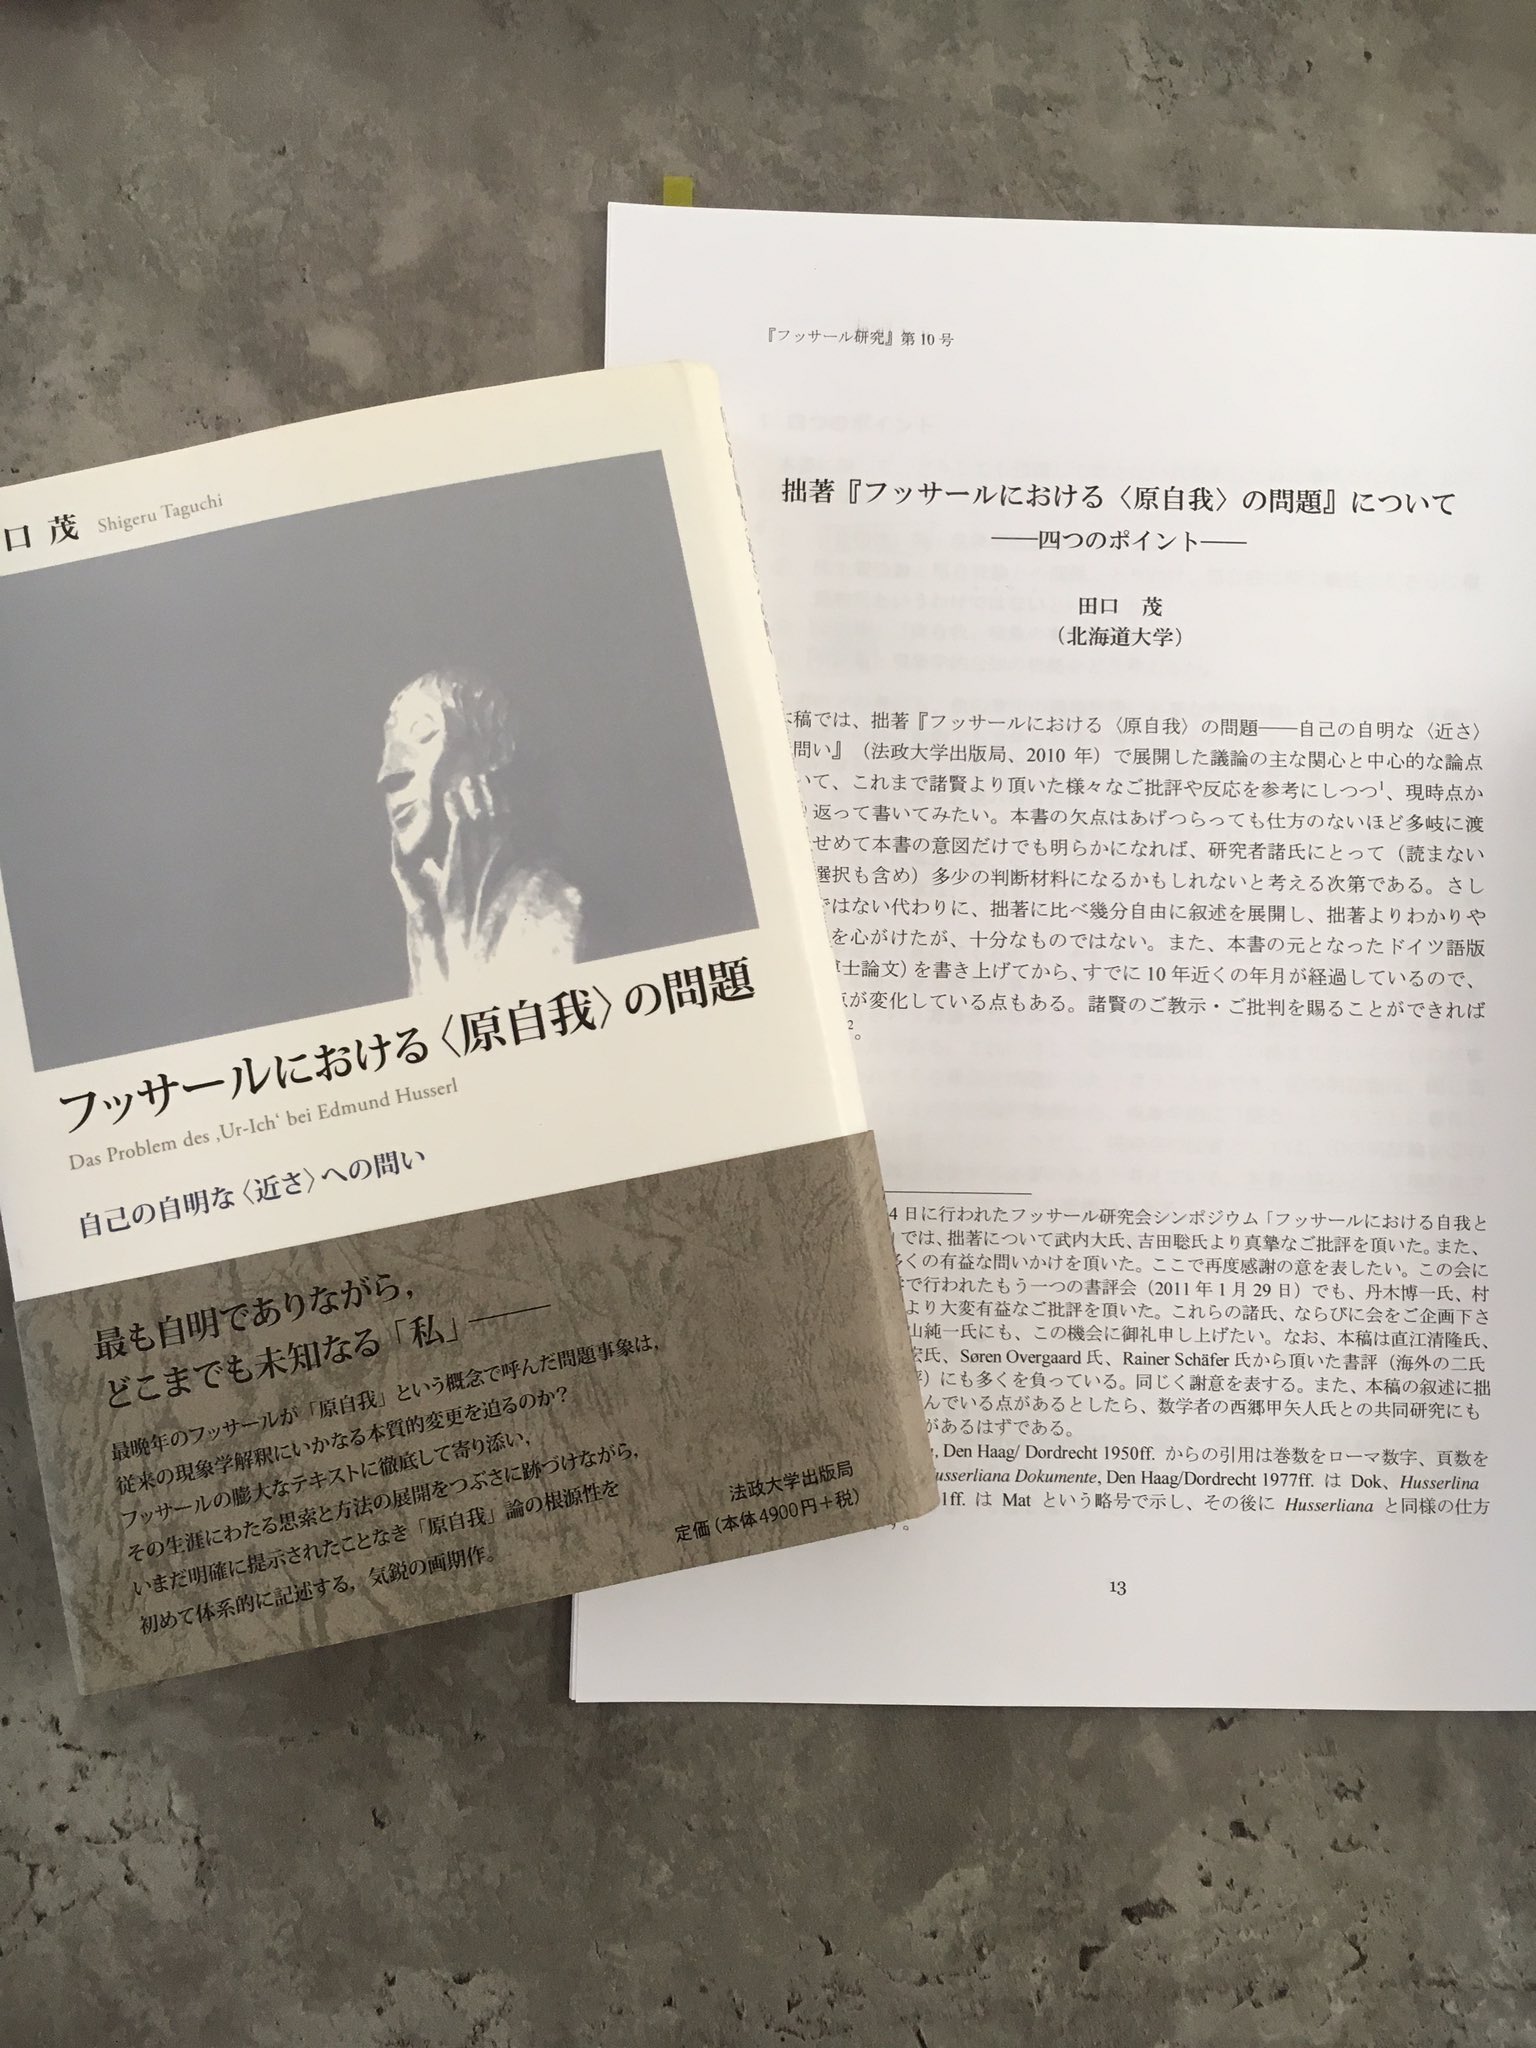 口 茂 Shigeru Taguchi
フッサールにおける〈原自我〉の問題
Das Problem des ‚Ur-Ich‘ bei Edmund Husserl
自己の自明な〈近さ〉への問い
最も自明でありながら，
どこまでも未知なる「私」――
最晩年のフッサールが「原自我」という概念で呼んだ問題事象は，
従来の現象学解釈にいかなる本質的変更を迫るのか？
フッサールの膨大なテキストに徹底して寄り添い，
その生涯にわたる思索と方法の展開をつぶさに跡づけながら，
いまだ明確に提示されたことなき「原自我」論の根源性を
初めて体系的に記述する，気鋭の画期作。
法政大学出版局
定価（本体4900円＋税）
『フッサール研究』第 10 号
拙著『フッサールにおける〈原自我〉の問題』について
――四つのポイント――
田口 茂
（北海道大学）
本稿では、拙著『フッサールにおける〈原自我〉の問題――自己の自明な〈近さ〉
問い』（法政大学出版局、2010 年）で展開した議論の主な関心と中心的な論点
いて、これまで諸賢より頂いた様々なご批評や反応を参考にしつつ¹、現時点か
返って書いてみたい。本書の欠点はあげつらっても仕方のないほど多岐に渡
せめて本書の意図だけでも明らかになれば、研究者諸氏にとって（読まない
選択も含め）多少の判断材料になるかもしれないと考える次第である。さし
ではない代わりに、拙著に比べ幾分自由に叙述を展開し、拙著よりわかりや
を心がけたが、十分なものではない。また、本書の元となったドイツ語版
士論文）を書き上げてから、すでに 10 年近くの年月が経過しているので、
が変化している点もある。諸賢のご教示・ご批判を賜ることができれば
²。
4 日に行われたフッサール研究会シンポジウム「フッサールにおける自我と
」では、拙著について武内大氏、吉田聡氏より真摯なご批評を頂いた。また、
多くの有益な問いかけを頂いた。ここで再度感謝の意を表したい。この会に
で行われたもう一つの書評会（2011 年 1 月 29 日）でも、丹木博一氏、村
より大変有益なご批評を頂いた。これらの諸氏、ならびに会をご企画下さ
山純一氏にも、この機会に御礼申し上げたい。なお、本稿は直江清隆氏、
宏氏、Søren Overgaard 氏、Rainer Schäfer 氏から頂いた書評（海外の二氏
）にも多くを負っている。同じく謝意を表する。また、本稿の叙述に拙
んでいる点があるとしたら、数学者の西郷甲矢人氏との共同研究にも
があるはずである。
, Den Haag/ Dordrecht 1950ff. からの引用は巻数をローマ数字、頁数を
Husserliana Dokumente, Den Haag/Dordrecht 1977ff. は Dok、Husserlina
1ff. は Mat という略号で示し、その後に Husserliana と同様の仕方
。
13